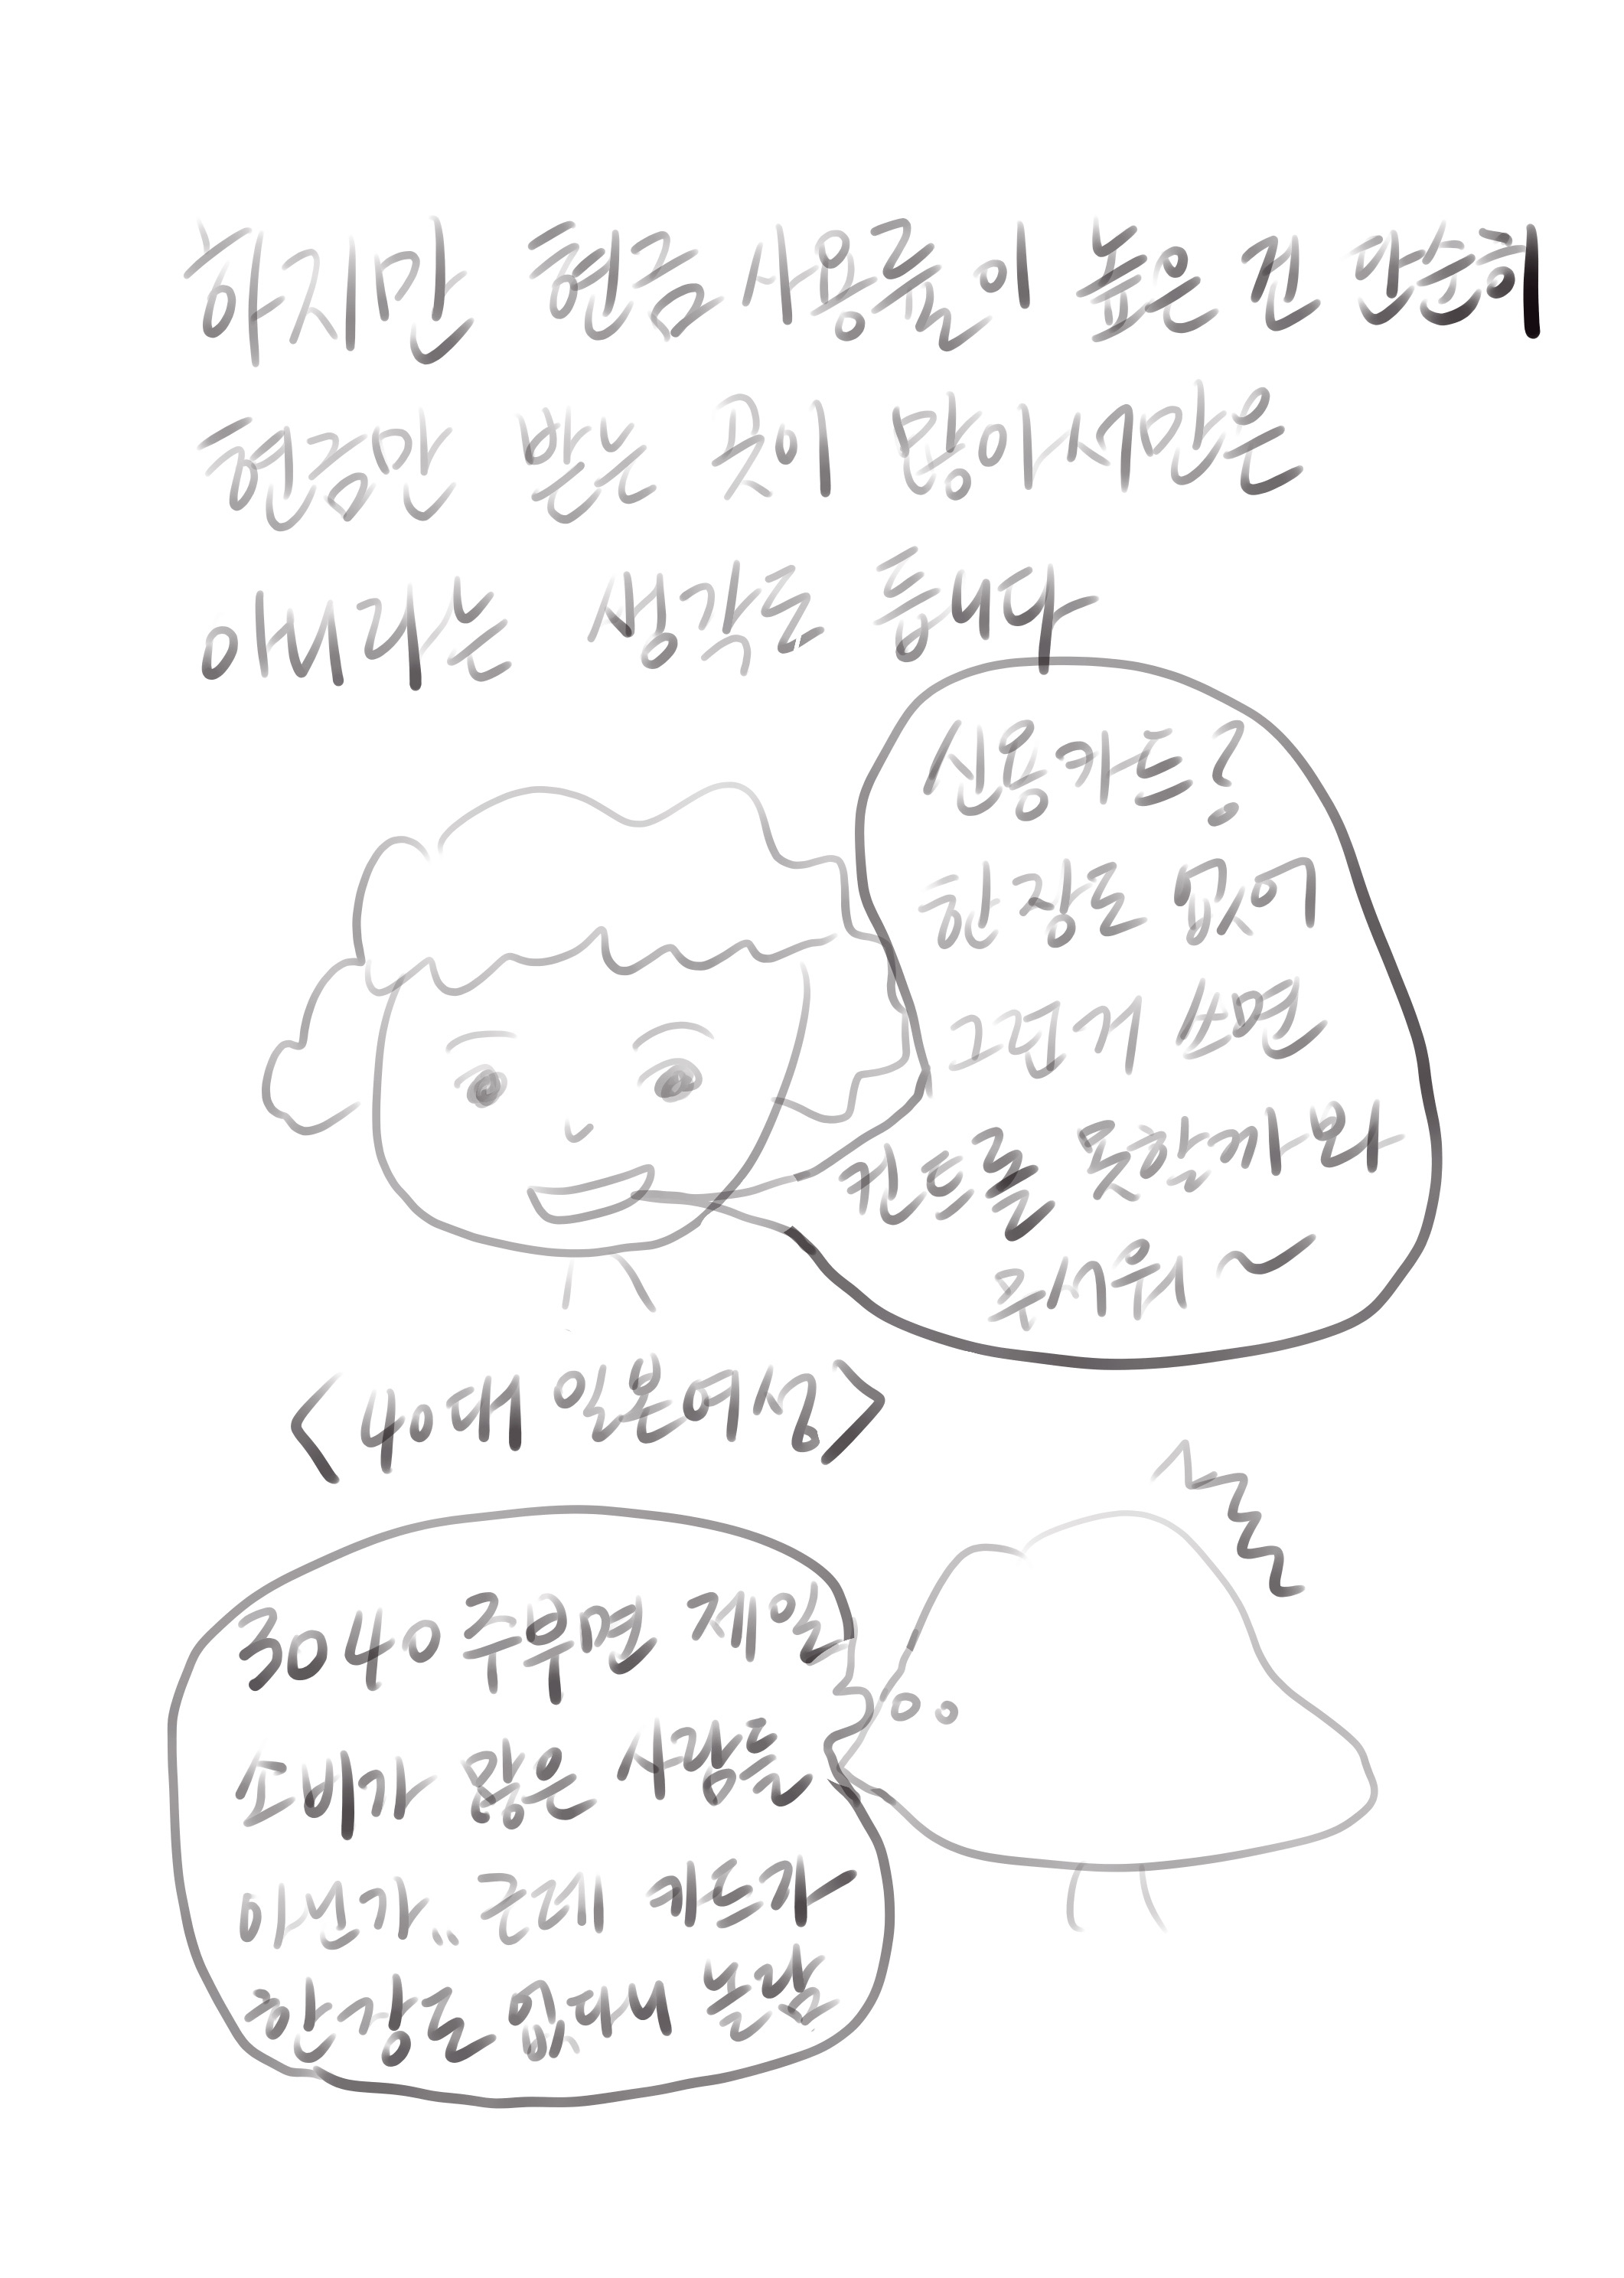 하지만 현금 사용률이 높은 건 단순히
현금만 받는 곳이 많아서만은
아니라는 생각도 듭니다
신용카드?
한장도 없어
그런거 쓰면
컨트롤 못할거와
무서워 ~
<40대 일본여성>
3040 주부면 제일
소비가 많은 사람들
아닌가.. 근데 카드가
한장도 없대서 놀람